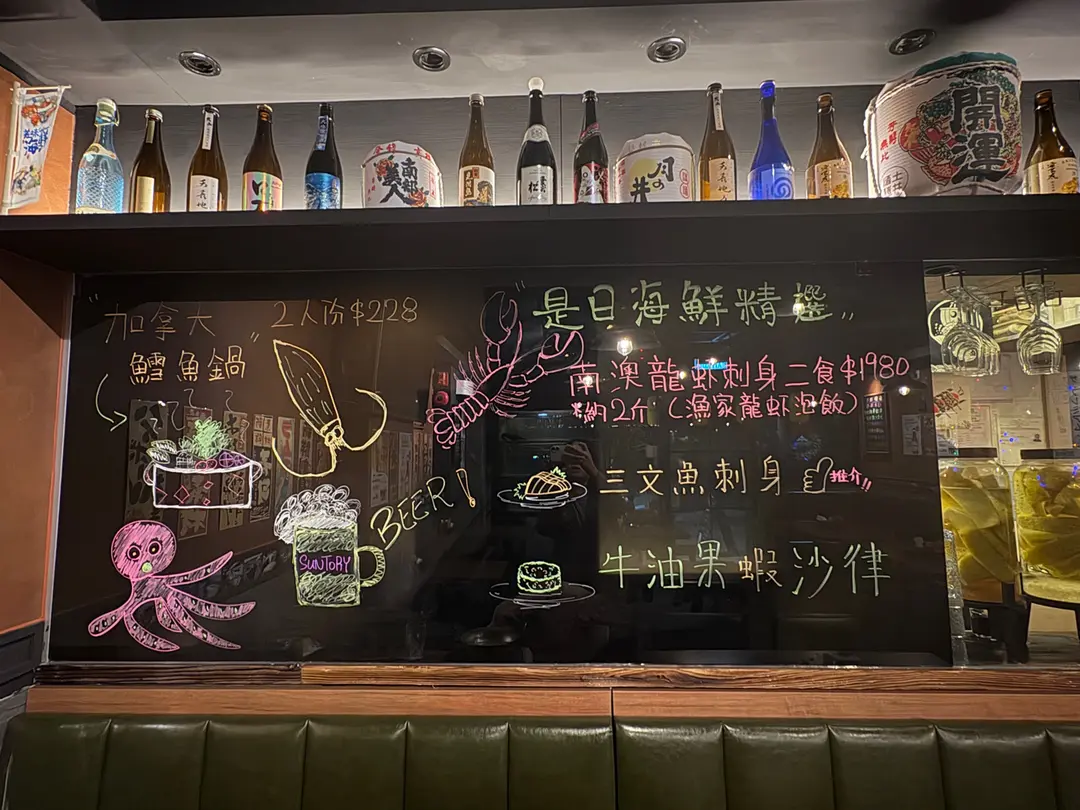 開運
南部美人
月の井
"加拿大"
2人份$228
鱈魚鍋
BEER!
SUNTORY
"是日海鮮精選"
南澳龍虾刺身二食$1980
*約2斤(漁家龍虾泡飯)
三文魚刺身
推介!!
牛油果蝦沙律